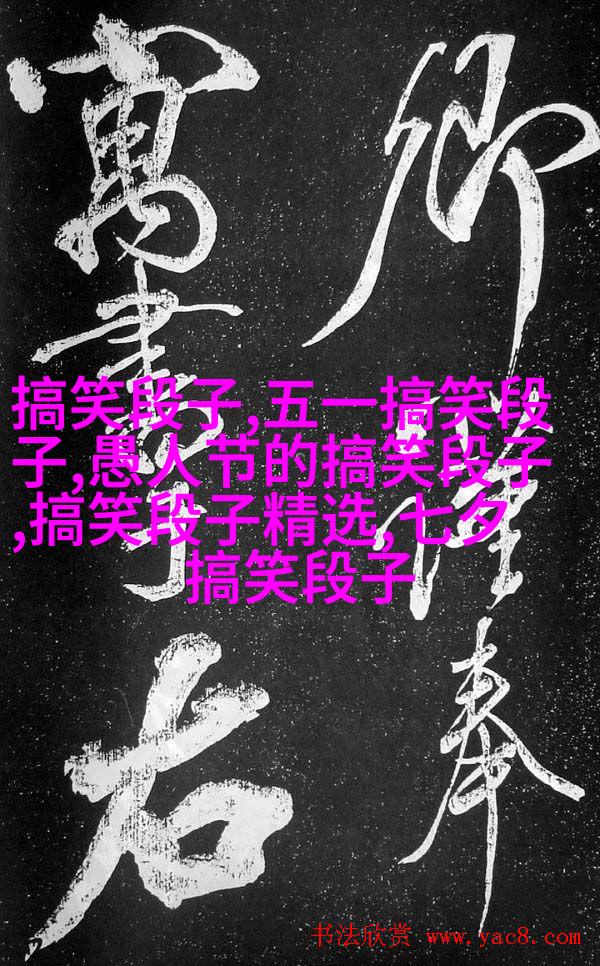 卿奉
寓書于右
搞笑段子,五一搞笑段
子,愚人节的搞笑段子
,搞笑段子精选,七夕
搞笑段子
书法欣赏 www.yac8.com